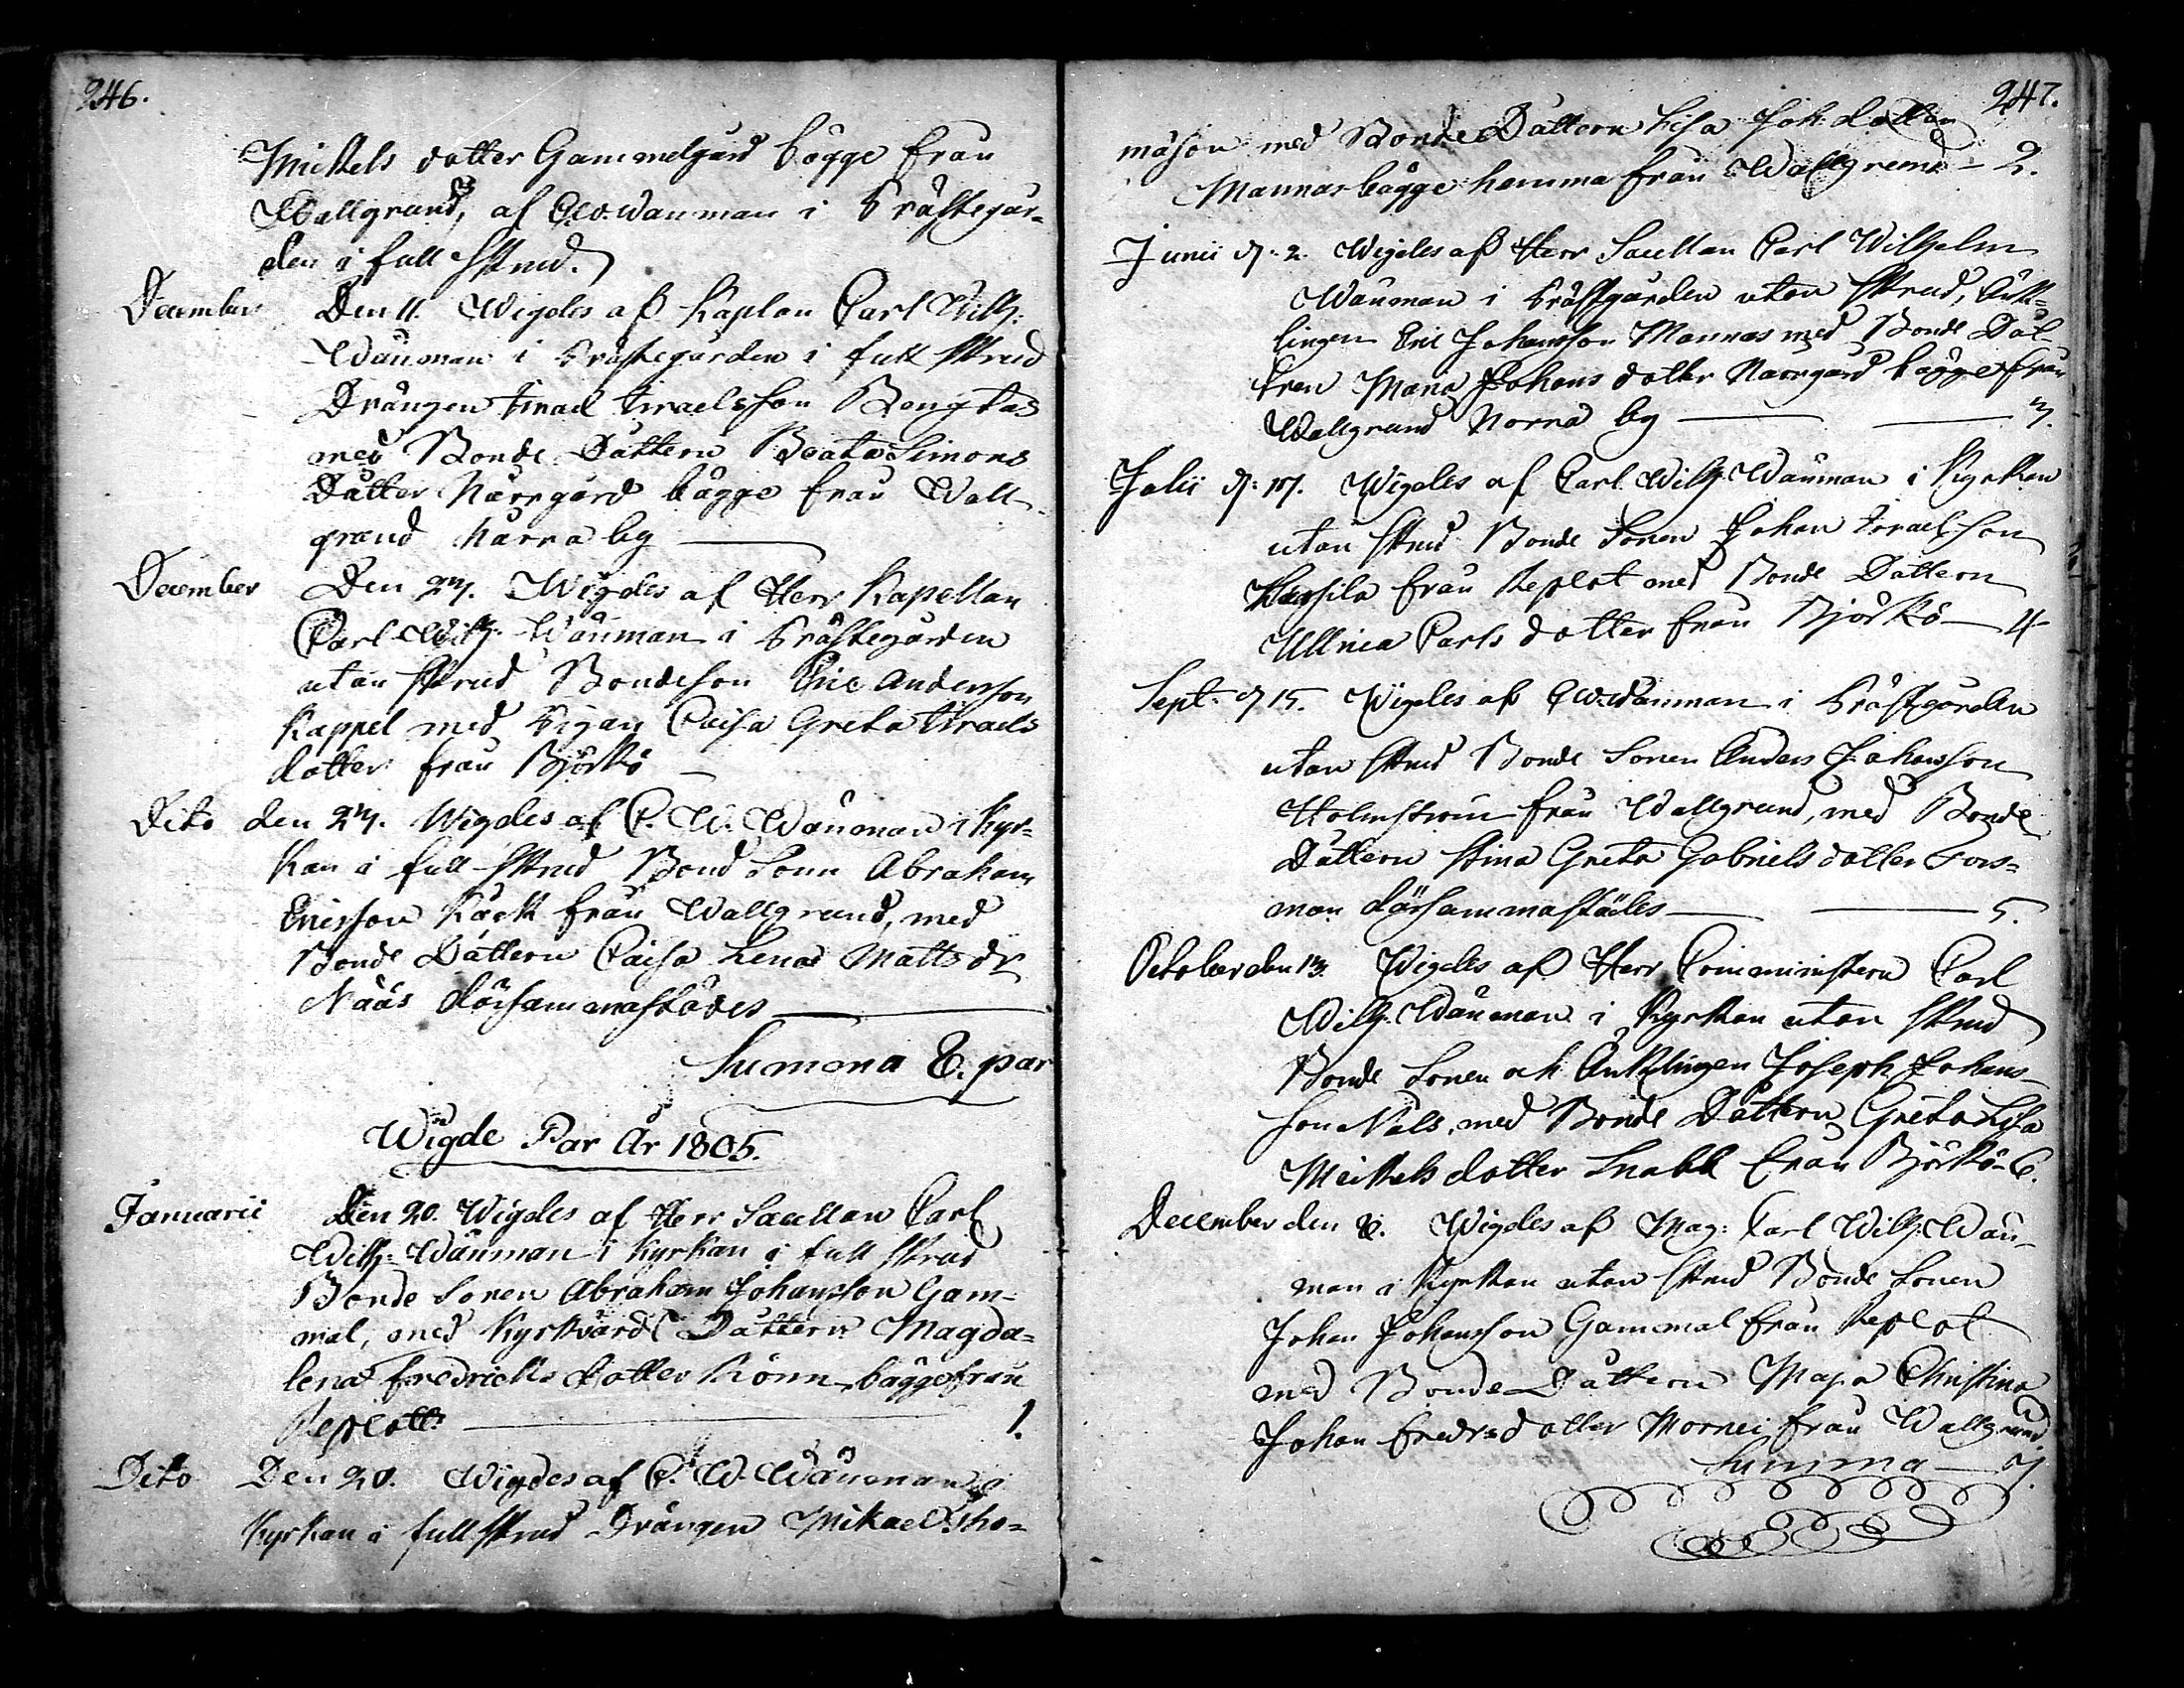 246.
Mickels dotter Gammelgård bägge från
Wallgrund, af C.W. Wänman i Prästegår-
den i full skrud.
December Den 11. Wigdes af Kaplan Carl Wilh:
Wänman i Prästegården i full skrud
Drängen Israel Israelsson Bengtas
med Bonde Dåttern Beata Simons
Dåtter Närrgård bägge från Wall-
grund Närra by
December Den 27. Wigdes af Herr Kapellan
Carl Wilh. Wänman i Prästegården
utan skrud Bondeson Eric Andersson
Kappel med Pigan Caisa Greta Israels
dotter från Björkö
Dito den 27. Wigdes af C. W. Wänman i Kyr-
kan i full skrud Bond Sonn Abraham
Ericsson Käck från Wallgrund, med
Bonde Dåttern Caisa Lena Matts dr
Nääs därsammastädes
Summa 8. par
Wigde Par År 1805.
Januarii Den 20. Wigdes af Herr Sacellan Carl
Wilh: Wänman i Kyrkan i full skrud
Bonde Sonen Abraham Johansson Gam-
mal, med Kyrkvärds Dåttern Magda-
lena Fredricks dotter Rönn bägge från
Replott 1.
Dito Den 20. Wigdes af C. W. Wänman i
Kyrkan i full skrud Drängen Mikael Tho-
247.
mäson med Bonde Dåttern Lisa Joh. dotter
Mannas bägge hemma från Wallgrund - 2.
Junii d: 2. Wigdes af Herr Sacellan Carl Wilhelm
Wänman i Prästgården utan skrud, Änk-
lingen Eric Johansson Mannas med Bonde Dåt-
tren Maria Johans dotter Norrgård bägge från
Wallgrund Norra by 3.
Julii d: 17. Wigdes af Carl Wilh. Wänman i Kyrkan
utan skrud Bonde Sonen Johan Israelsson
från Replot med Bonde Dåttern
Ullrica Carls dotter från Björkö 4
Sept. d 15. Wigdes af C W. Wänman i Prästgården
utan skrud Bonde Sonen Anders Johansson
Holmström från Wallgrund, med Bonde
Dåttern Stina Greta Gabriels dotter Fors-
man därsammastädes 5.
October den 13. Wigdes af Herr Comministern Carl
Wilh. Wänman i Kyrkan utan skrud
Bonde Sonen och Änklingen Joseph Johans-
son Nåls, med Bonde Dåttern Greta Lisa
Mickels dotter Snabb från Björkö 6.
December den 8. Wigdes af Mag: Carl Wilh. Wän-
man i Kyrkan utan skrud Bonde Sonen
Johan Johansson Gammal från Replot
med Bonde Dåttern Maja Christina
Johan Fredrs dotter från Wallgrund
Summa 7.